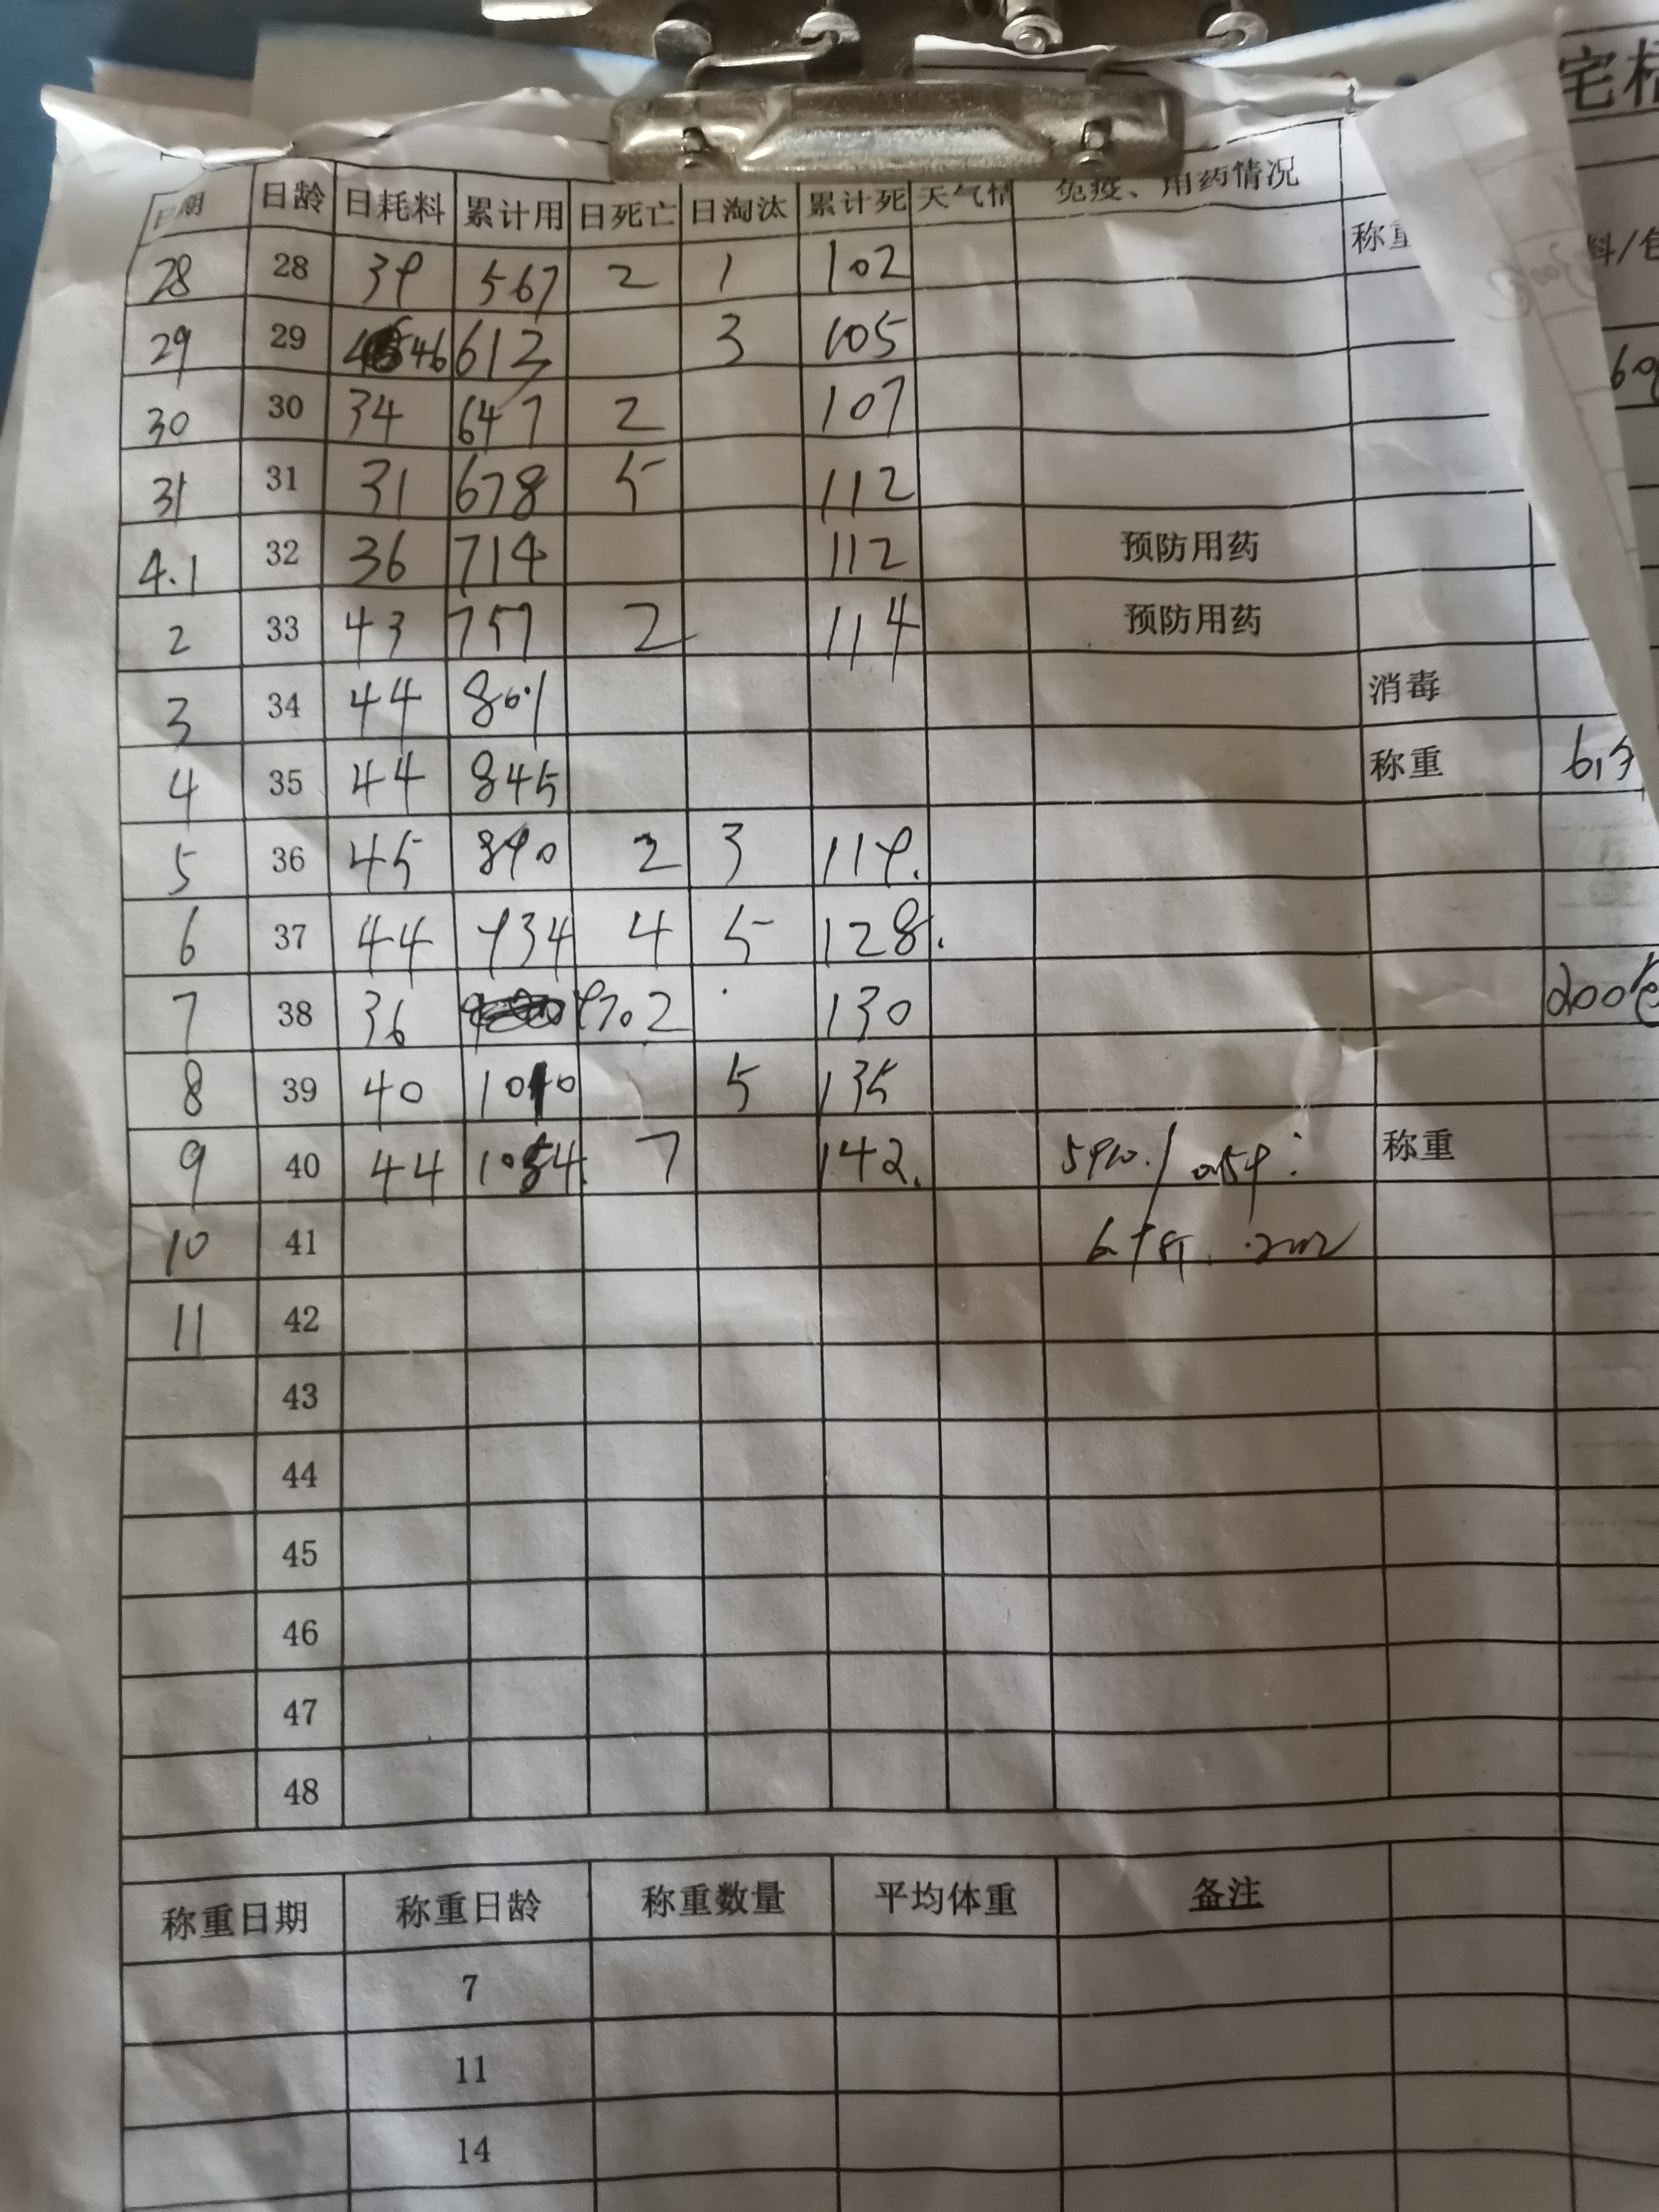 日期 日龄 日耗料 累计用 日死亡 日淘汰 累计死 天气情 免疫、用药情况
28 28 39 567 2 1 102 称重
29 29 46 613 3 105
30 30 34 647 2 107
31 31 31 678 5 112
4.1 32 36 714 112 预防用药
2 33 43 757 2 114 预防用药
3 34 44 801 消毒
4 35 44 845 称重
5 36 45 890 2 3 119.
6 37 44 934 4 5 128.
7 38 36 970 2 130
8 39 40 1010 5 135
9 40 44 1054. 7 142. 称重
10 41
11 42
43
44
45
46
47
48
称重日期 称重日龄 称重数量 平均体重 备注
7
11
14